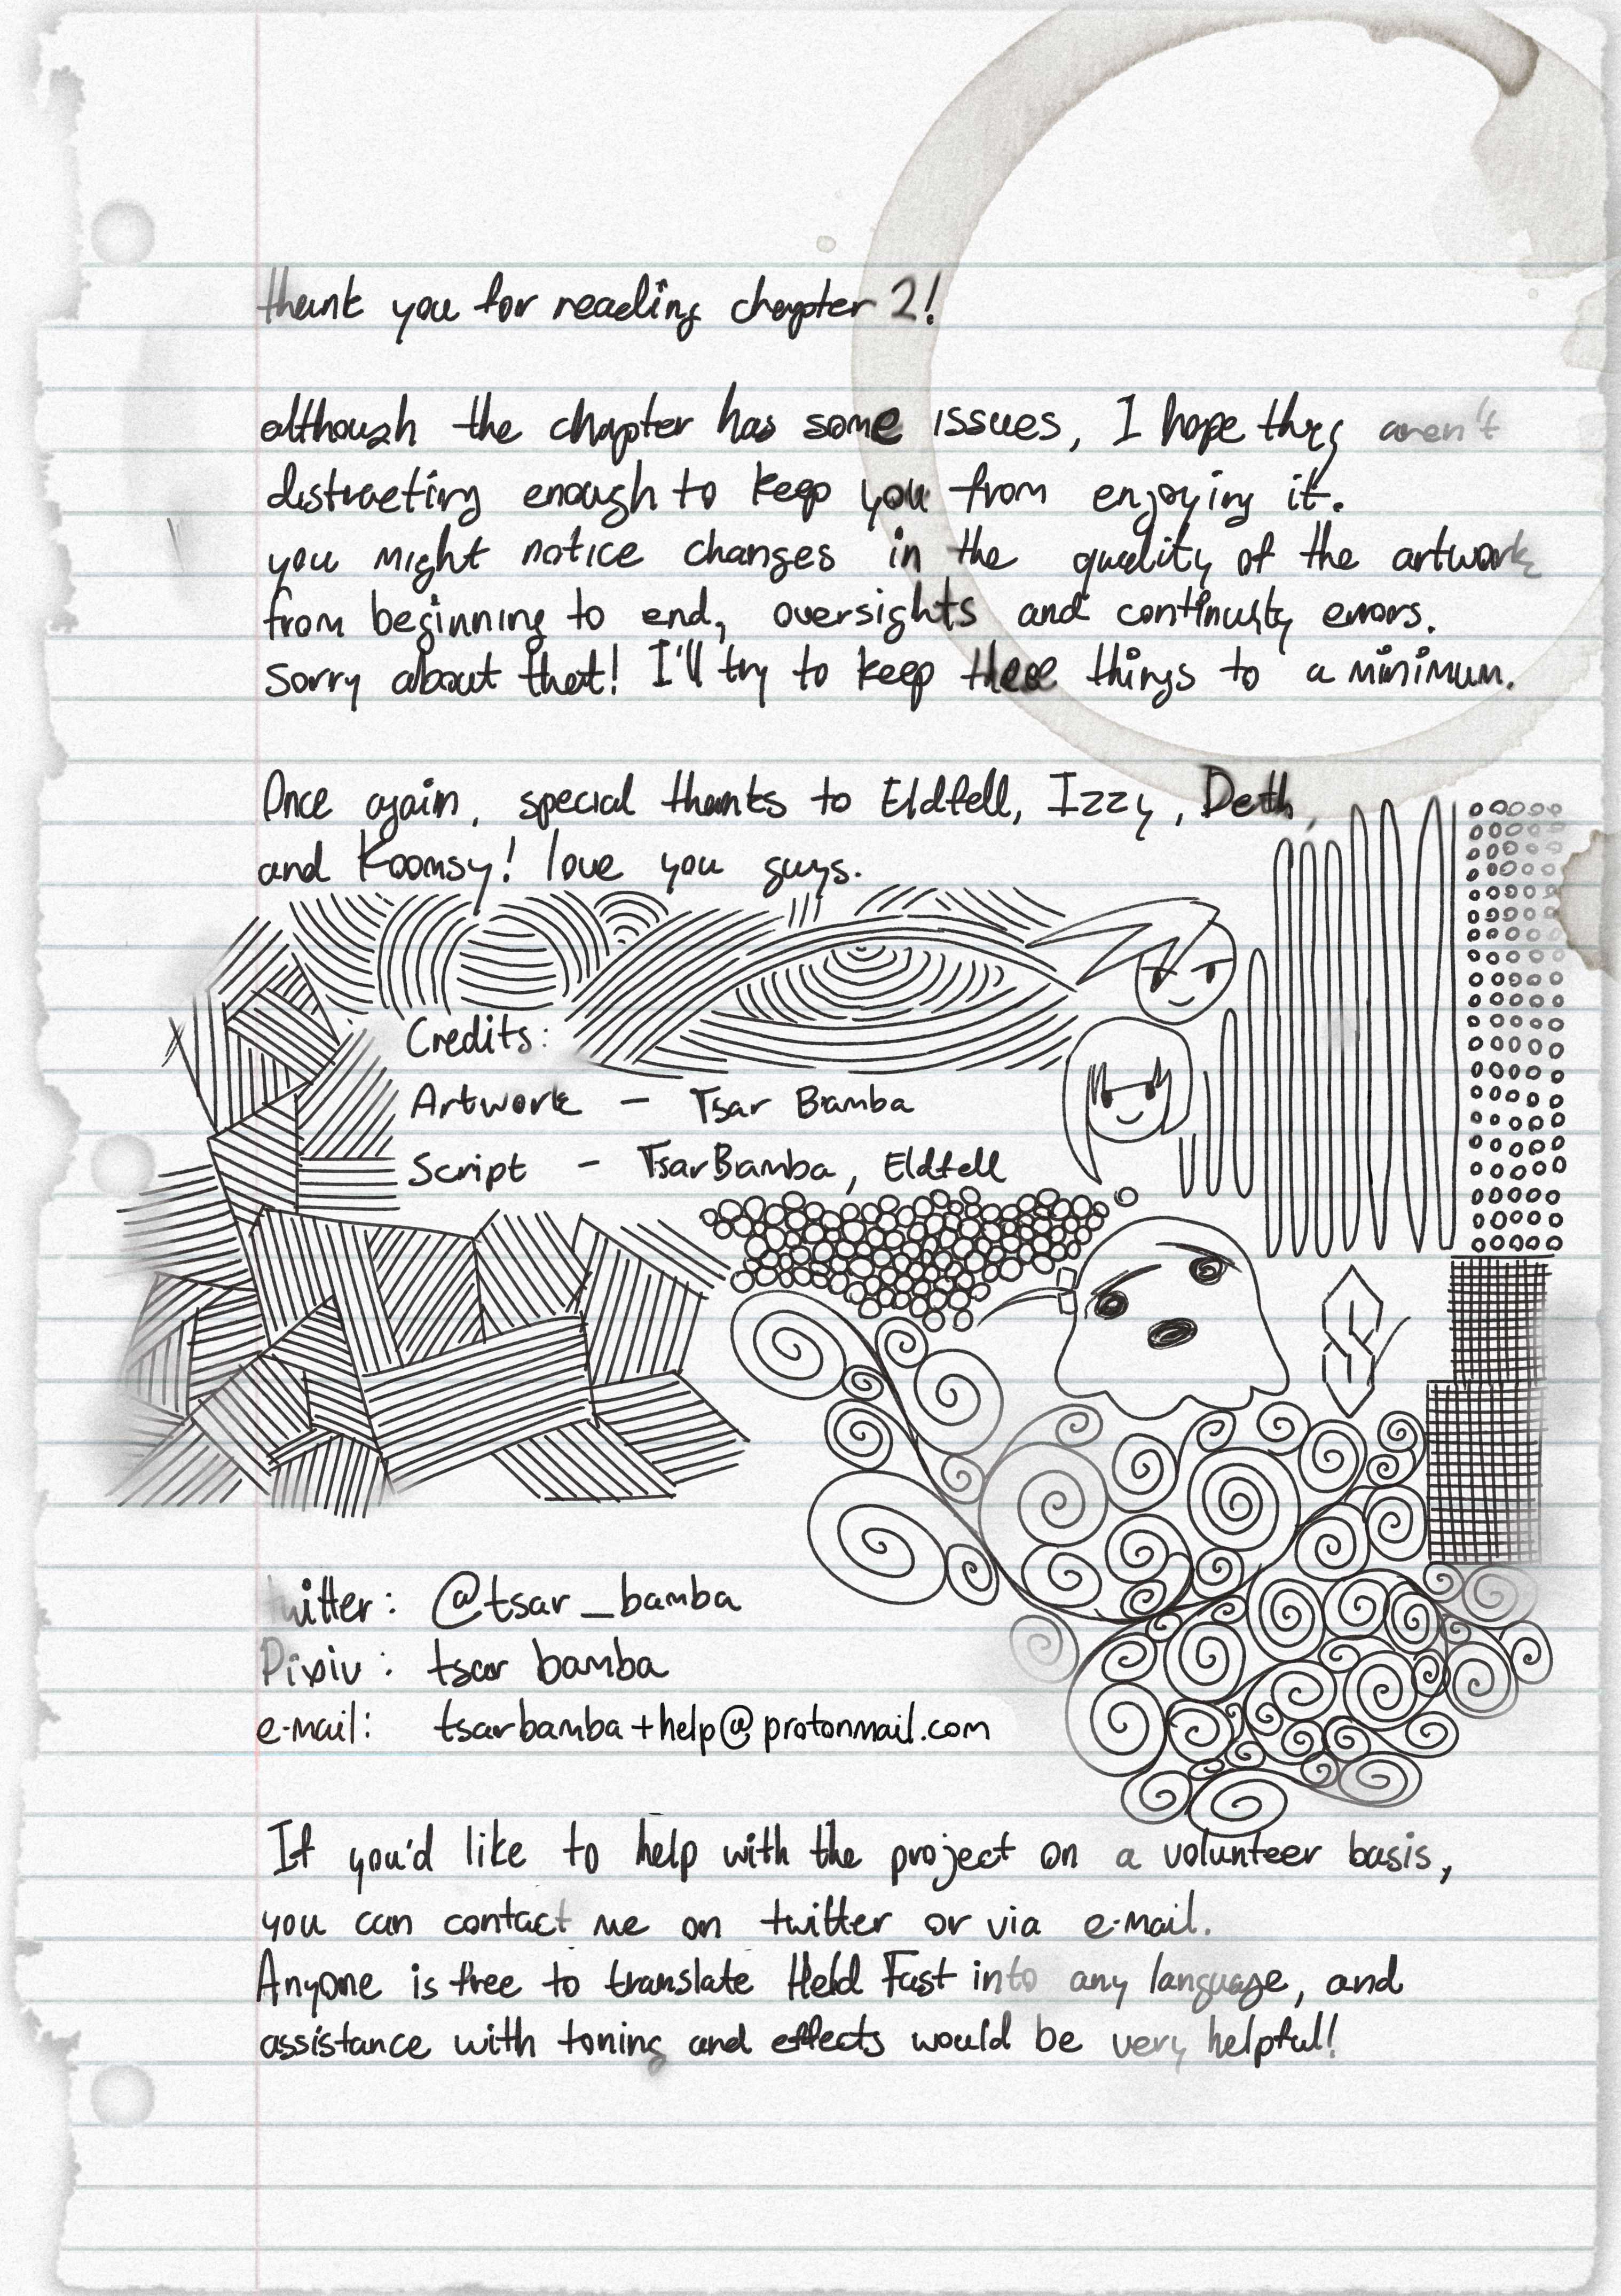 thank you for reading chapter 2!
although the chapter has some issues, I hope they aren't
distracting enough to keep you from enjoying it.
you might notice changes in the quality of the artwork
from beginning to end, oversights and continuity errors.
Sorry about that! I'll try to keep these things to a minimum.
Once again, special thanks to Eldfell, Izzy, Deth,
and Koomsy! love you guys.
Credits:
Artwork - Tsar Bamba
Script - TsarBamba, Eldfell
twitter: @tsar_bamba
Pixiv: tsar bamba
e-mail: tsarbamba+help@protonmail.com
If you'd like to help with the project on a volunteer basis,
you can contact me on twitter or via e-mail.
Anyone is free to translate Held Fast into any language, and
assistance with toning and effects would be very helpful!